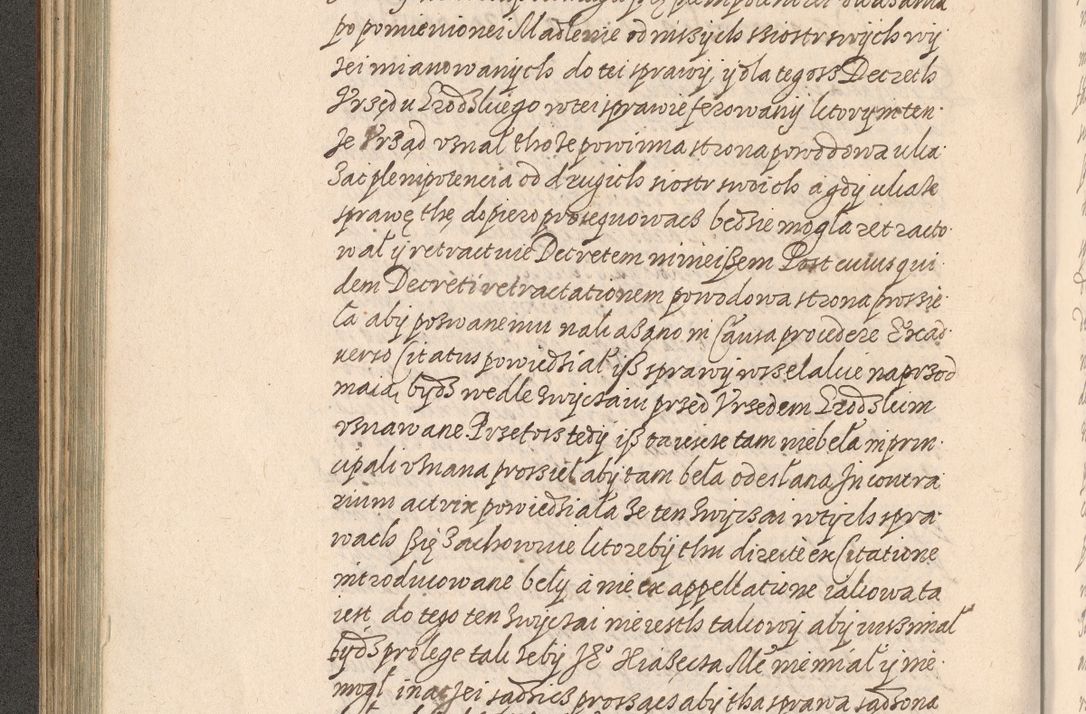 po pomienionei Madlenie od inszych siostr swych wy
zei mianowanych do tei sprawy, y dla tegosz Decreth
Vrzędu Grodskiego w tei sprawie ferowany ktorym ten
ze Vrząd vznał thoze powinna strona powodowa uka
zac plenipotencia od drugich siostr swoich a gdy ukaze
sprawę thę dopiero prosequowacz będzie mogła retracto
wał y retractuie Decretem ninieiszem Post cuius qui
dem Decreti retractationem powodowa strona prosie
ła aby poswanemu nakazano in Causa procedere Ex ad
uerso Citatus powiedział ysz sprawy wszelakie naprzod
maią bydz wedle zwyczaiu przed Vrzedem Grodskiem
vznawane. Przetosz tedy ysz ta iescze tam niebeła in prin
cipali vznana prosieł aby tam beła odesłana In contra
rium actrix powiedziała ze ten zwyczai w tych spra
wach się zachowuie ktoreby thu directe ex Citatione
introducowane beły a nie ex appellatione iakowa ta
iest do tego ten zwyczai nie iesth takowy aby iusz miał
bydz pro lege tak zeby Je<sup>o</sup> Xiążęcza Mć nie miał y nie
mogł inaczei sadzicz prosząc aby tha sprawa sądzona